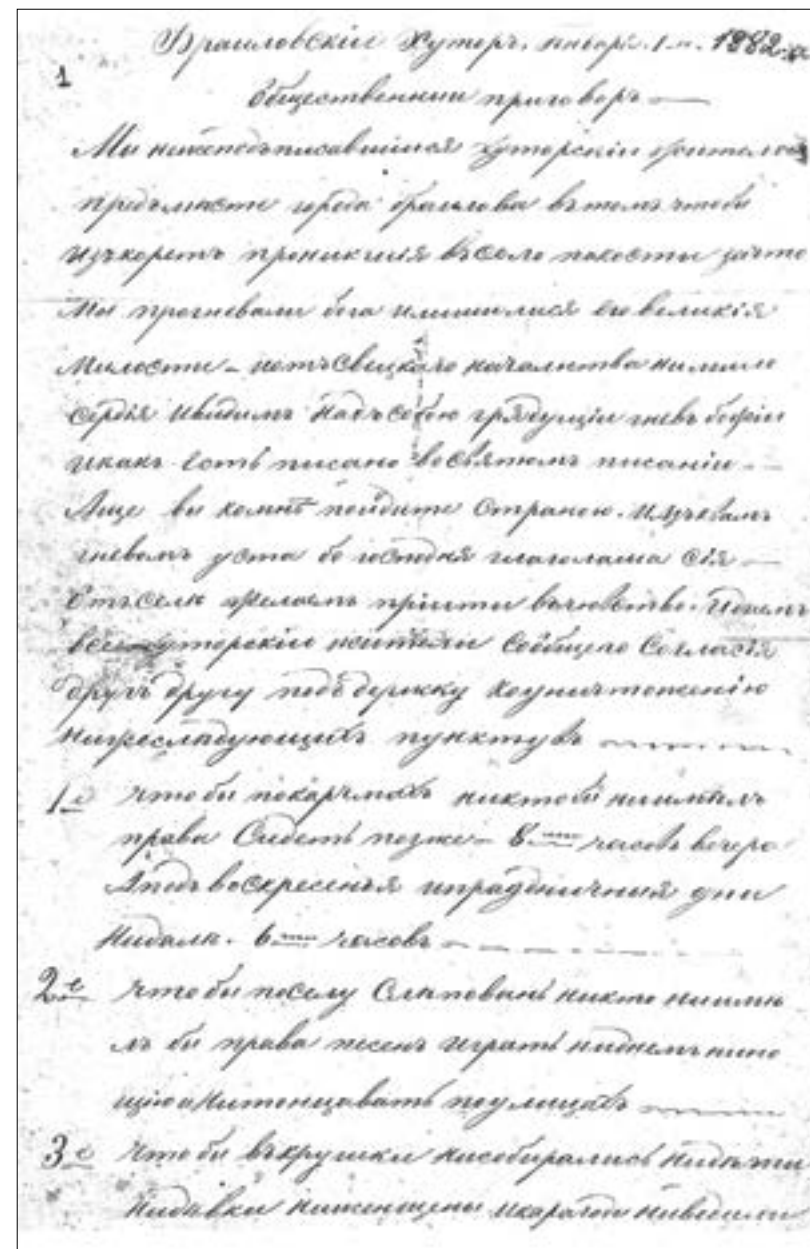 Браиловскіи Хуторъ. январь. 1-го. 1882 го
1
Общественнии приговоръ —
Мы нижеподъписавшиися хуторскіи жители
предъмести города браилова вътомъ чтоби
изъкоретъ проникшия въсело пакости зачто
Мы прогневали бога илишилися его великія
Милости - нетъсвецкаго началиства нимило
сердія ивидимъ надъсобою грядущіи гневъ божіи
икакъ есть писано восвятомъ писаніи -
Аще ви комне поидите страною. изъ вамъ
гневомъ уста бо господня глаголаша сія —
Отъселя желаемъ пріити въчювство. Идаемъ
все хуторскіи жители собщего согласія
другъ другу подъдержку коуничтоженію
нижеследующихъ пунктувъ
1е чтоби покарчмахъ никтоби ниимелъ
права Сидеть позже - 8ми часовъ вечера
Аподъвоскресенья ипраздничния дни
нидали. 6ти часовъ
2е чтоби поселу Слиповань никто ниимы
лъ би права песень играть нидномъ нино
щию нитонцавать поулицахъ
3е чтоби въкружки нисобирались нидети
нидевки ниженщены икарагод ниводили